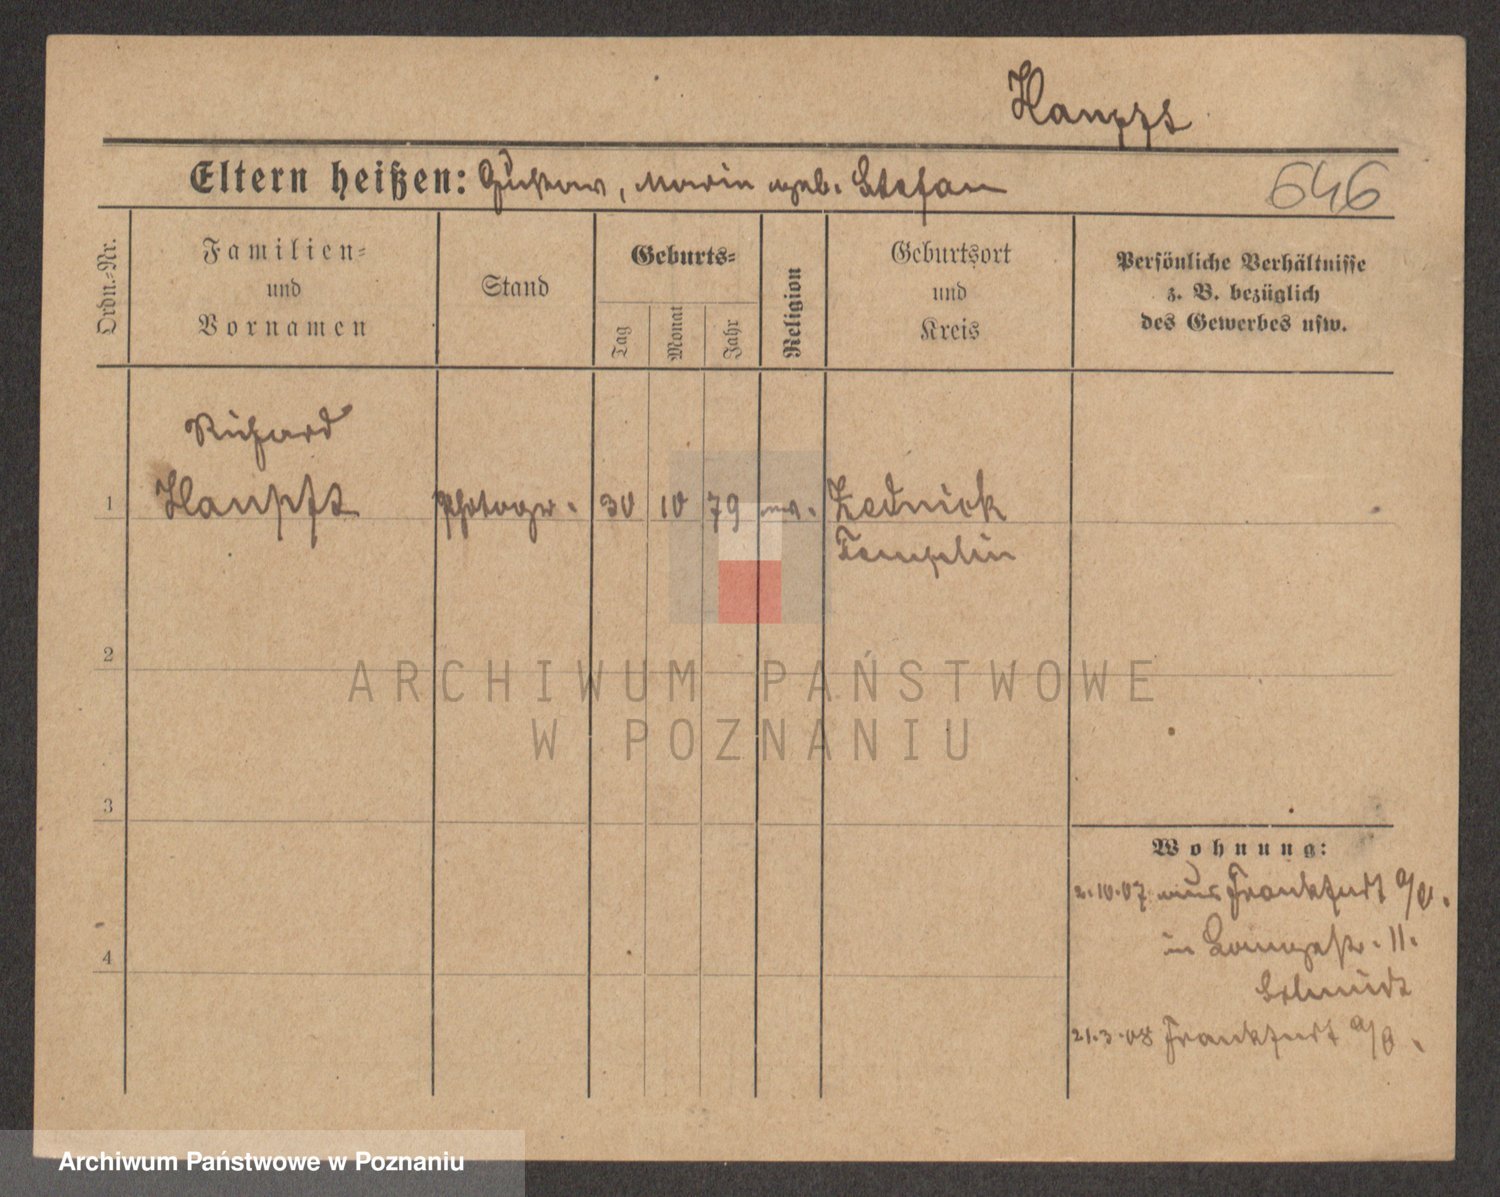 Haupft
Eltern heißen: Gustav, Marie geb. Stefan
646
Ordn.-Nr.
Familien- und Vornamen
Stand
Geburts-
Tag
Monat
Jahr
Religion
Geburtsort und Kreis
Persönliche Verhältnisse
z. B. bezüglich
des Gewerbes usw.
Richard
1 Haupft Photogr. 30 10 79 ev. Zednick
Templin
2
ARCHIWUM PAŃSTWOWE
W POZNANIU
3
Wohnung:
2.10.07 aus Frankfurt a/O.
in Langestr. 11.
Schmidt
4
21.3.08 Frankfurt a/O.
Archiwum Państwowe w Poznaniu